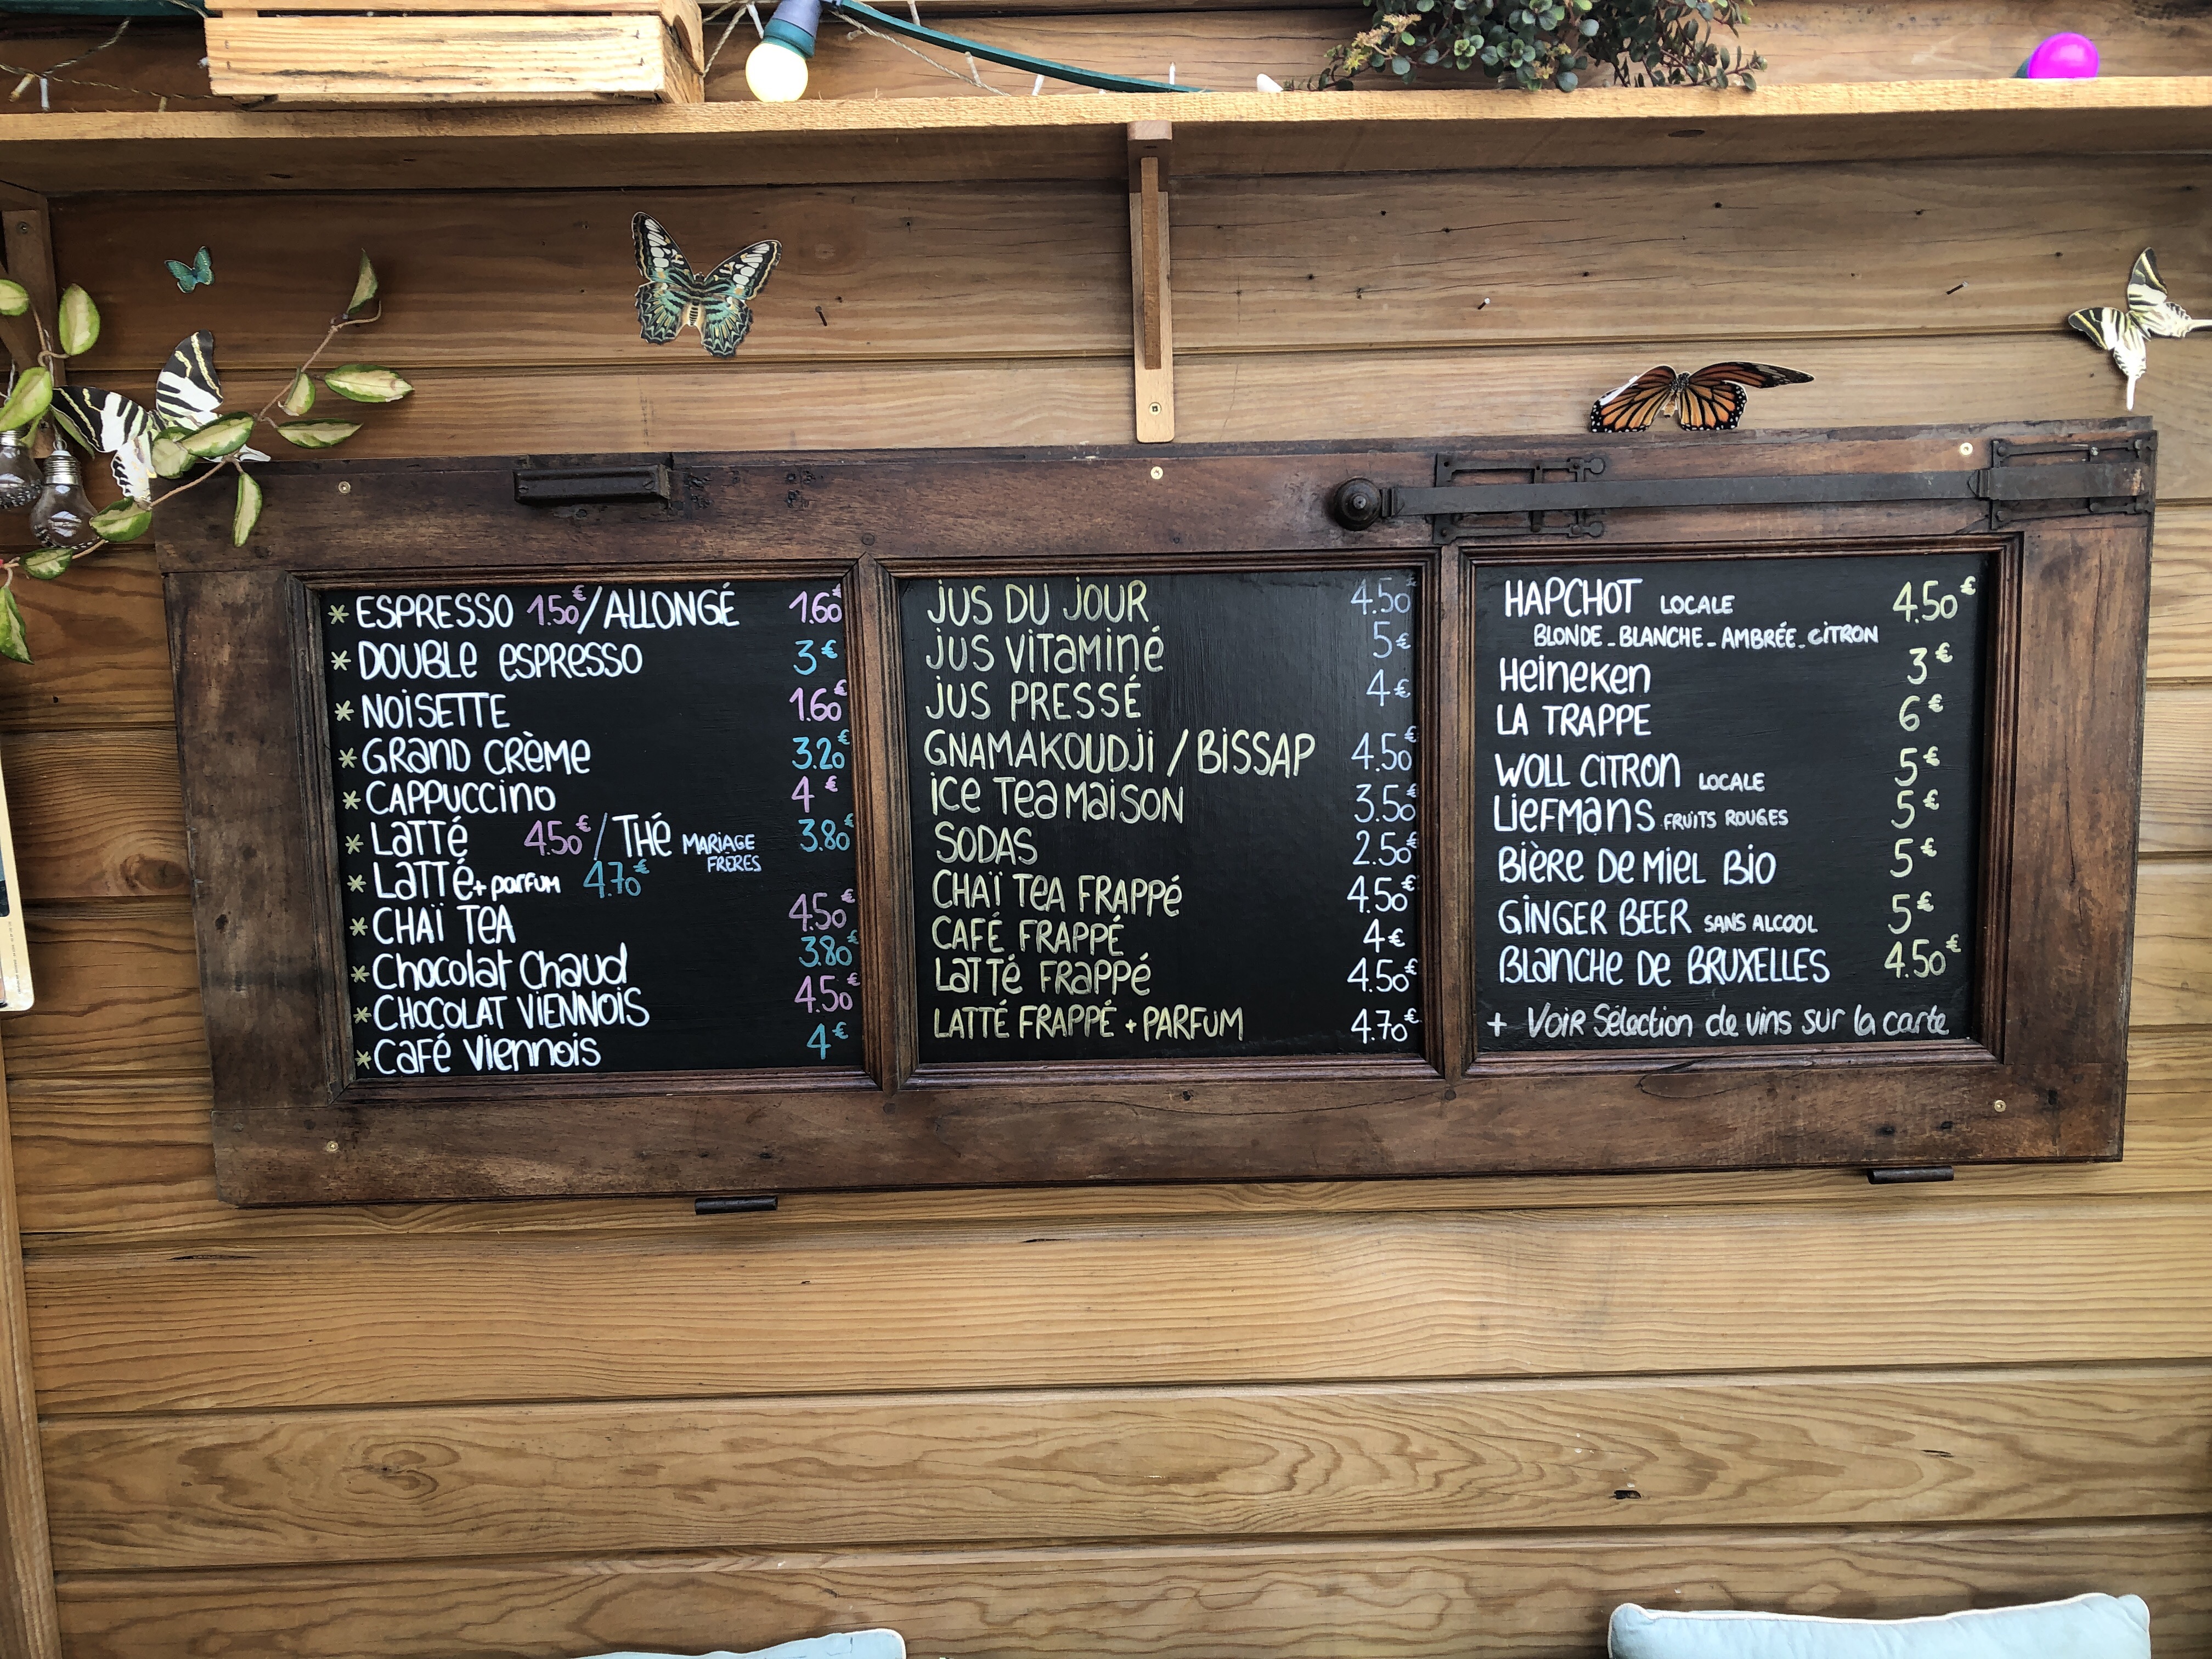 * ESPRESSO 1.50€/ALLONGÉ 1.60€
* DOUBLE ESPRESSO 3€
* NOISETTE 1.60€
* GRAND CRÈME 3.20€
* CAPPUCCINO 4€
* LATTÉ 4.50€/THÉ MARIAGE FRÈRES 3.80€
* LATTÉ + PARFUM 4.70€
* CHAÏ TEA 4.50€
* Chocolat Chaud 3.80€
* CHOCOLAT VIENNOIS 4.50€
* CAFÉ VIENNOIS 4€
JUS DU JOUR 4.50€
JUS VITAMINÉ 5€
JUS PRESSÉ 4€
GNAMAKOUDJI / BISSAP 4.50€
ICE TEA MAISON 3.50€
SODAS 2.50€
CHAÏ TEA FRAPPÉ 4.50€
CAFÉ FRAPPÉ 4€
LATTÉ FRAPPÉ 4.50€
LATTÉ FRAPPÉ + PARFUM 4.70€
HAPCHOT LOCALE 4.50€
BLONDE - BLANCHE - AMBRÉE - CITRON
Heineken 3€
LA TRAPPE 6€
WOLL CITRON LOCALE 5€
LIEFMANS FRUITS ROUGES 5€
BIÈRE DE MIEL BIO 5€
GINGER BEER SANS ALCOOL 5€
BLANCHE DE BRUXELLES 4.50€
+ VOIR Sélection de vins sur la carte